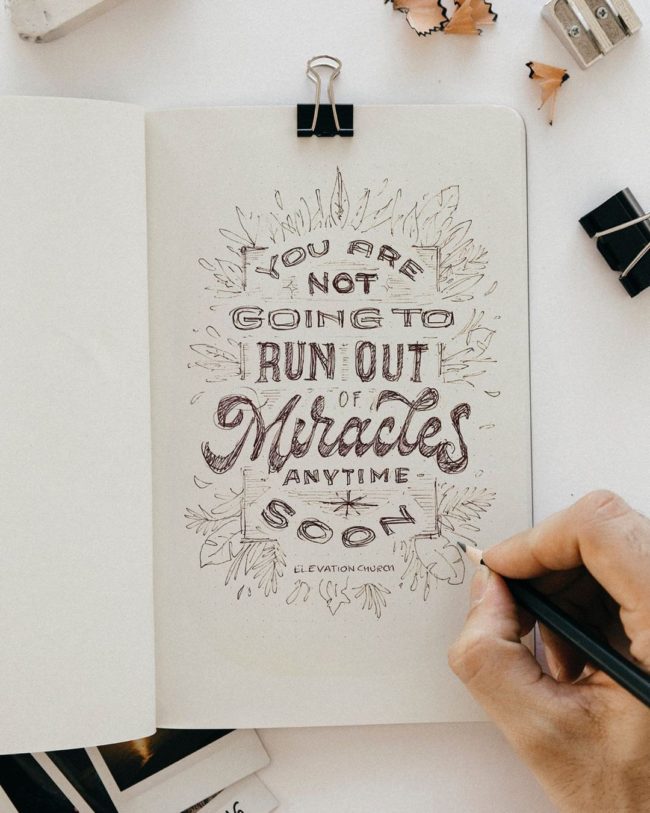 YOU ARE
NOT
GOING TO
RUN OUT
OF
Miracles
ANYTIME
SOON
ELEVATION CHURCH